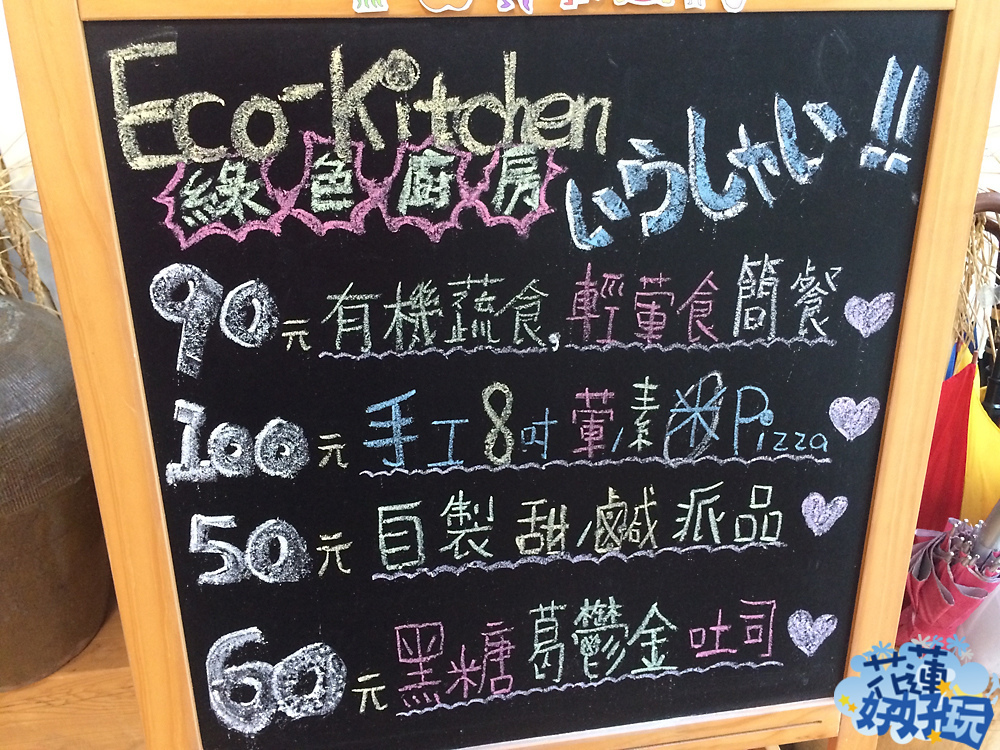 Eco-Kitchen
綠色廚房
いらしゃい!!
90元 有機蔬食,輕葷食簡餐
100元 手工8吋葷/素米Pizza
50元 自製甜/鹹派品
60元 黑糖葛鬱金吐司
花蓮好好玩